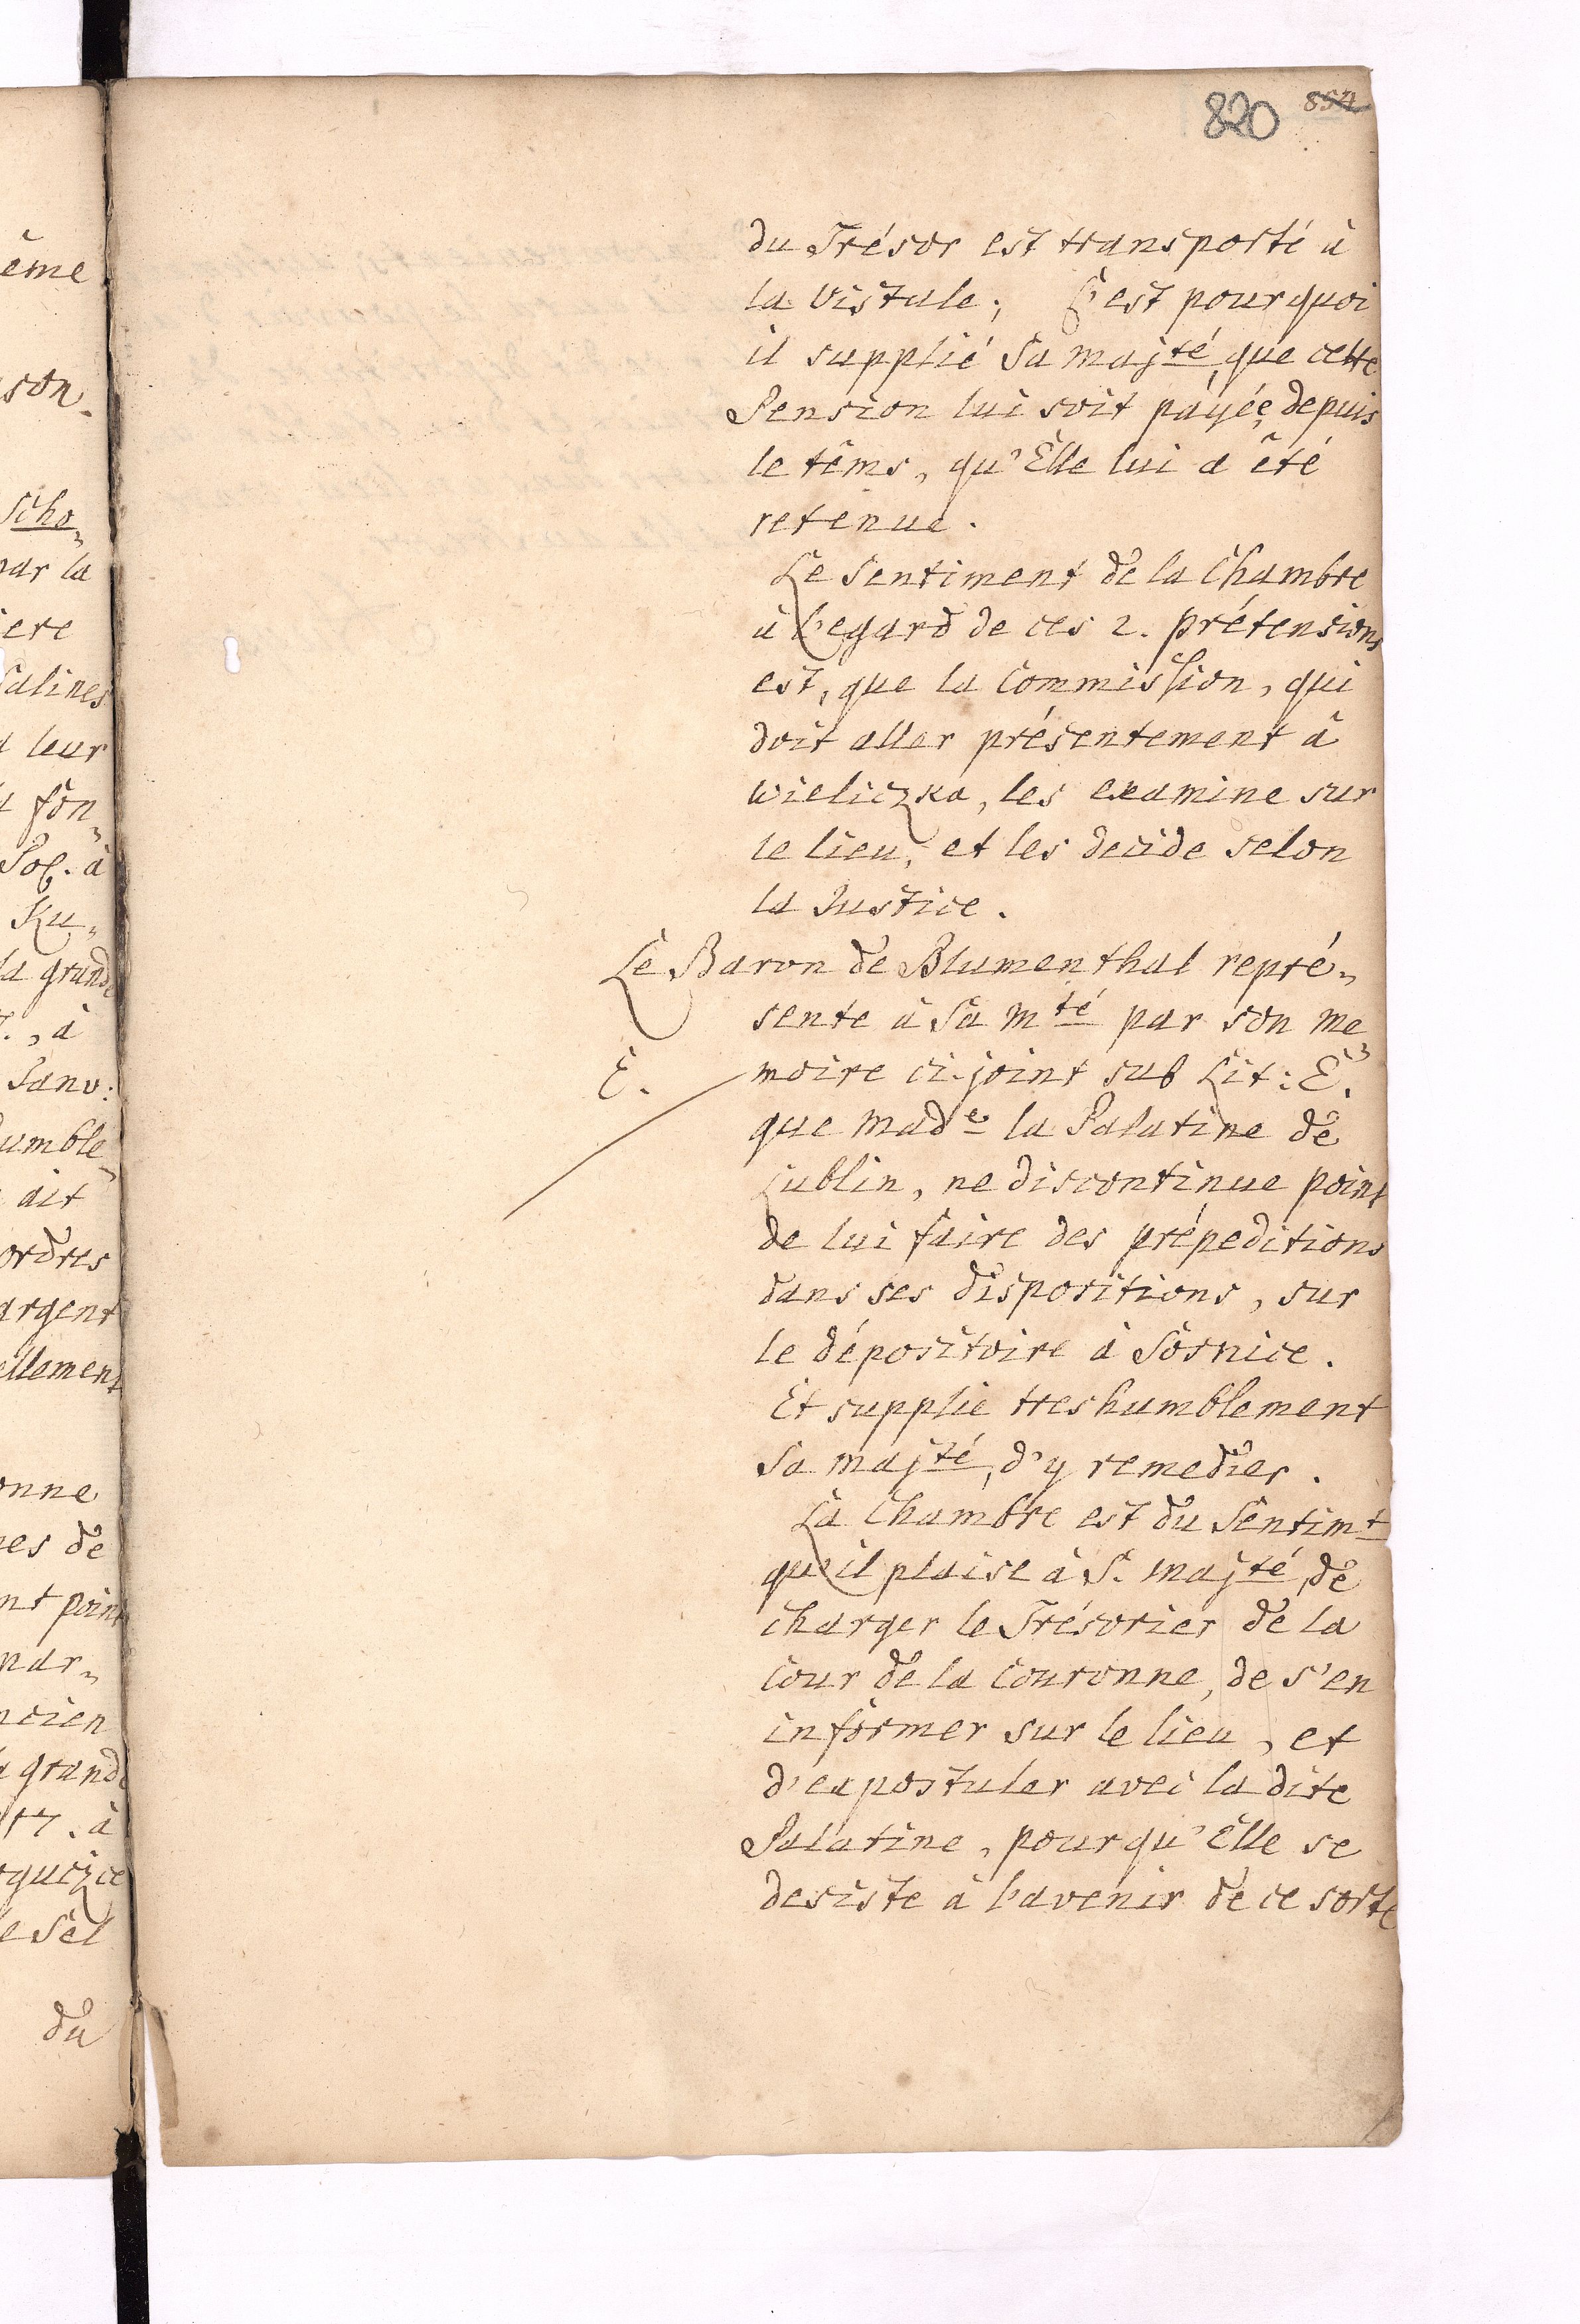 820 854
du Trésor est transporté à
la Vistule; C'est pourquoi
il supplié Sa Majté, que cette
Pension lui soit payée, depuis
le têms, qu'Elle lui a êté
retenue.
Le Sentiment de la Chambre
à l'egard de ces 2. prétensions
est, que la Commission, qui
doit aller présentement à
Wieliczka, les examine sur
le lieu, et les decide selon
la Justice.
Le Baron de Blumenthal repré„
sente à Sa Mté par son me„
E. moire ci-joint sub Lit: E.
que Made la Palatine de
Lublin, ne discontinue point
de lui faire des prépeditions
dans ses dispositions, sur
le dépositoire à Sosnice.
Et supplie tres humblement
Sa Majté, d'y remedier.
La Chambre est du Sentimt
qu'il plaise à S. Majté, de
charger le Trésorier de la
Cour de la Couronne, de s'en
informer sur le lieu, et
d'expostuler avec la dite
Palatine, pour qu'Elle se
desiste à l'avenir de ce sorte
ême
son.
Scho„
par la
iere
Salines
leur
fon„
à
Ku„
la grande
à
Janv:
umble„
ait
ordres
argent
ellement
onne
es de
nt point
mar„
ncien
grande
17. à
le Sel
du